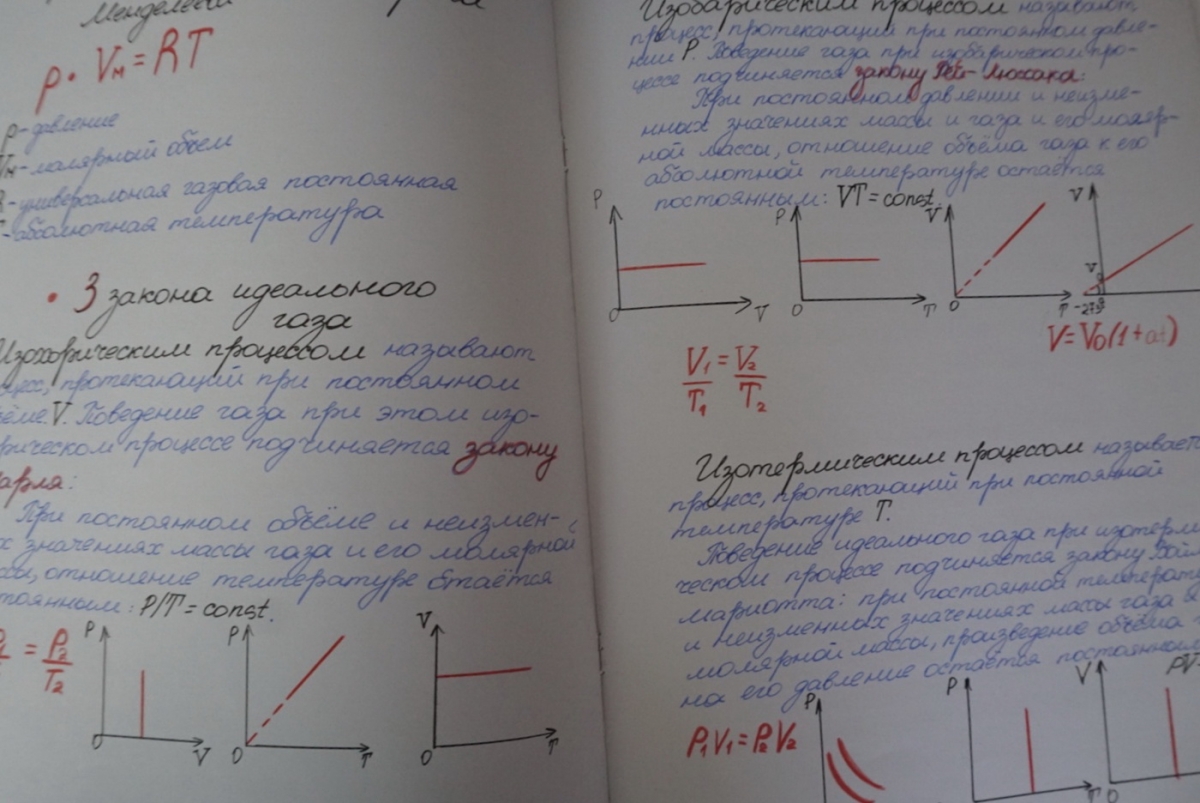 Менделеева
p · Vм = RT
p - давление
Vм - молярный объем
R - универсальная газовая постоянная
T - абсолютная температура
• 3 закона идеального
газа
Изохорическим процессом называют
процесс, протекающий при постоянном
объёме V. Поведение газа при этом изо-
рическом процессе подчиняется закону
Шарля:
При постоянном объёме и неизмен-
х значениях массы газа и его молярной
ссы, отношение температуре остаётся
тоянным: P/T = const.
P1/T1 = P2/T2
P
O
V
P
O
T
V
O
T
Изобарическим процессом называют
процесс, протекающий при постоянном давле-
нии P. Поведение газа при изобарическом про-
цессе подчиняется закону Гей-Люссака:
При постоянном давлении и неизме-
нных значениях массы и газа и его моляр-
ной массы, отношение объёма газа к его
абсолютной температуре остаётся
постоянным: VT = const.
P
O
V
P
O
T
V
O
T
V
V
-273
V = V0(1 + at)
V1/T1 = V2/T2
Изотермическим процессом называет
процесс, протекающий при постоянной
температуре T.
Поведение идеального газа при изотерми
ческом процессе подчиняется закону Бойл
мариотта: при постоянной температу
и неизменных значениях массы газа и
молярной массы, произведение объёма
на его давление остаётся постоянным
PV
P1V1 = P2V2
P
P
T
V
O